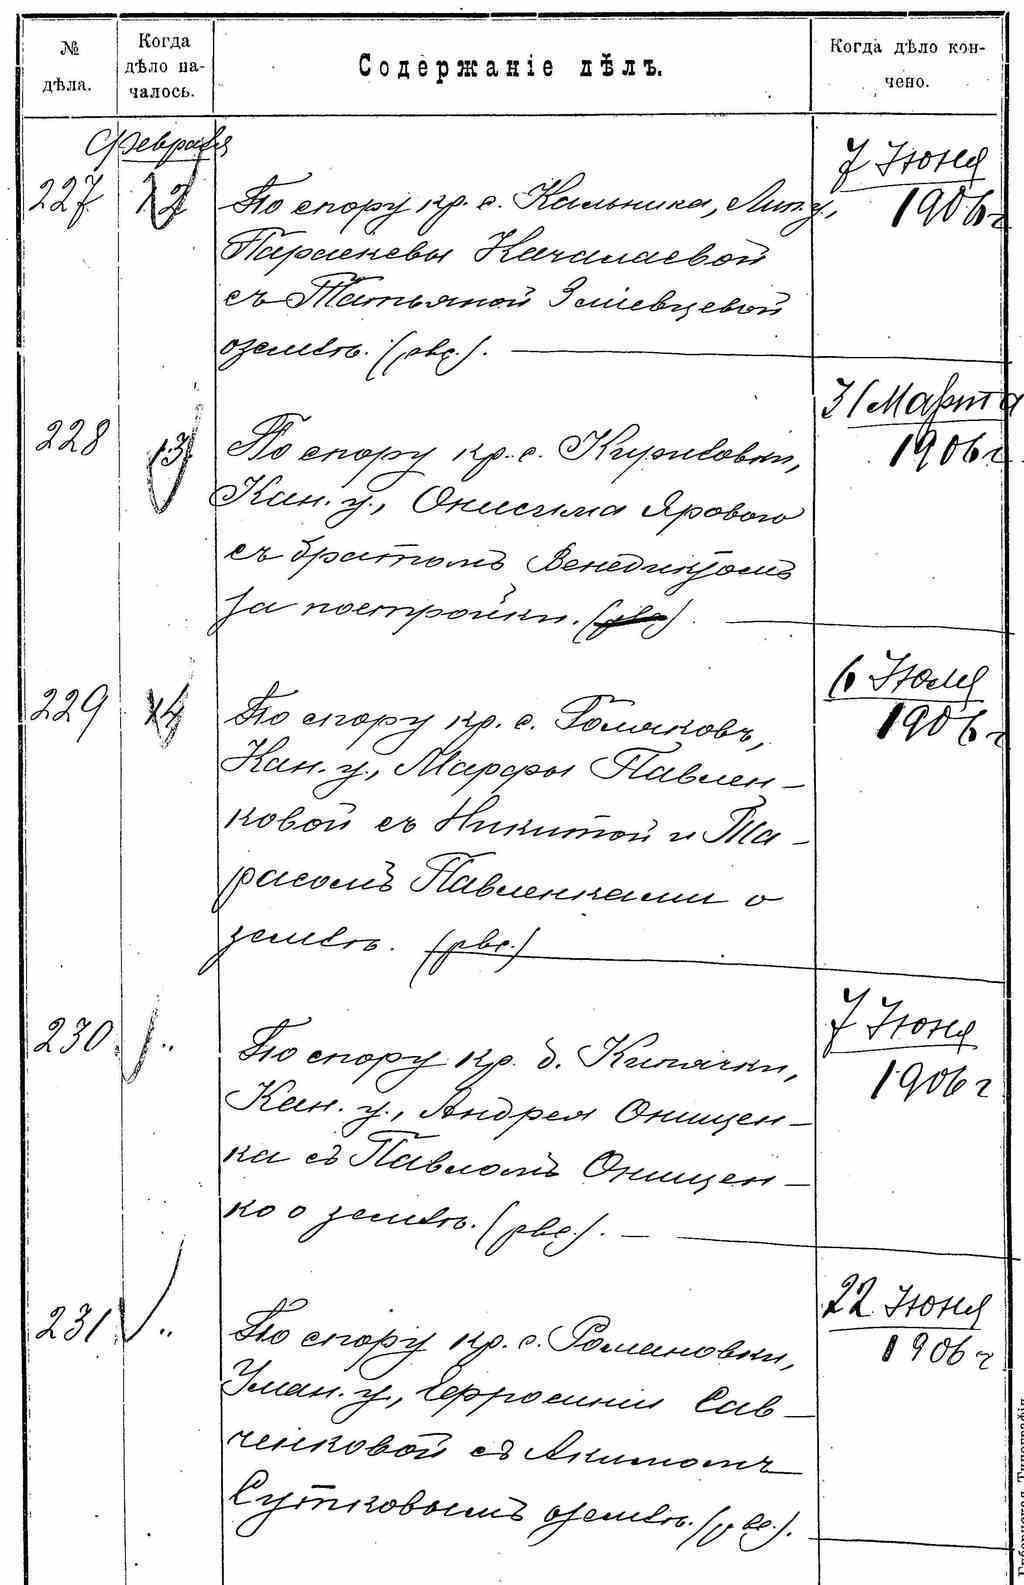 № дѣла.
Когда дѣло на-
чалось.
Содержаніе дѣлъ.
Когда дѣло кон-
чено.
Февраля
227
12
По спору кр. с. Кальника, Лип. у.,
Параскевы Качалаевой
съ Татьяной Зміевцевой
о землѣ.
7 Іюня
1906 г
228
13
По спору кр. с. Кирилловки,
Кан. у., Онисима Ярового
съ братомъ Венедиктомъ
за постройки.
31 Марта
1906 г.
229
14
По спору кр. с. Голяковъ,
Кан. у., Марфы Павлен-
ковой съ Никитой и Та-
расомъ Павленками о
землѣ.
6 Іюля
1906 г
230
"
По спору кр. д. Кипячки,
Кан. у., Андрея Онищен-
ка съ Павломъ Онищен-
ко о землѣ.
7 Іюня
1906 г
231
"
По спору кр. с. Романовки,
Уман. у., Ефросиніи Сав-
ченковой съ Акимомъ
Сутковымъ о землѣ.
22 Іюня
1906 г
Губернская Типографія